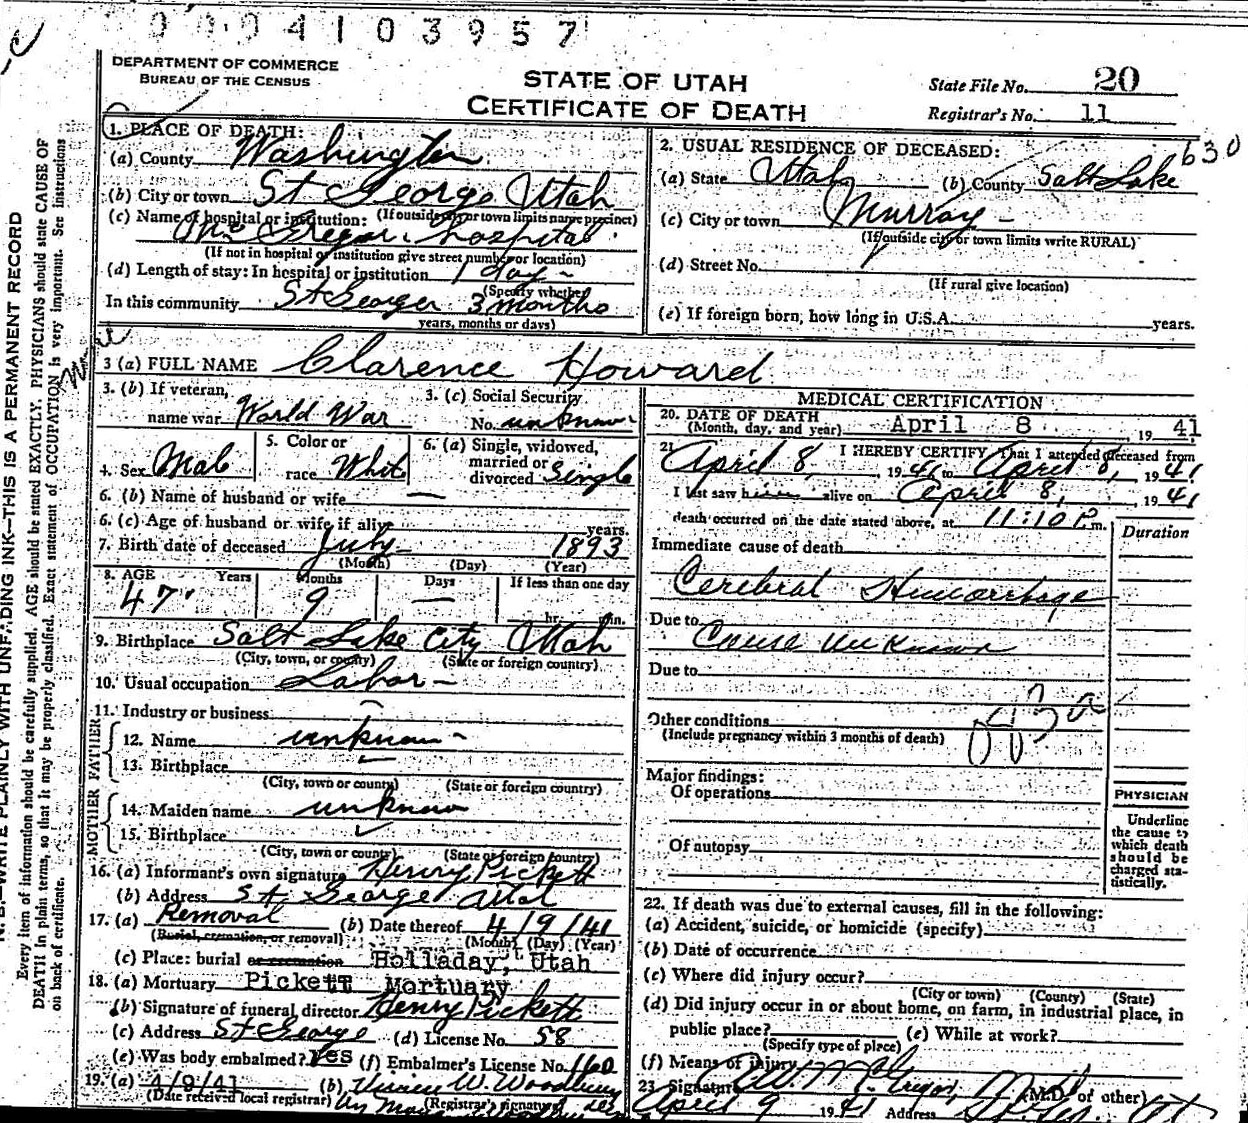 0004103957
DEPARTMENT OF COMMERCE
BUREAU OF THE CENSUS
STATE OF UTAH
CERTIFICATE OF DEATH
State File No. 20
Registrar's No. 11
1. PLACE OF DEATH:
(a) County Washington
(b) City or town St George Utah
(If outside city or town limits name precinct)
(c) Name of hospital or institution:
McGregor hospital
(If not in hospital or institution give street number or location)
(d) Length of stay: In hospital or institution 1 day
(Specify whether
In this community St George 3 months
years, months or days)
2. USUAL RESIDENCE OF DECEASED: 630
(a) State Utah (b) County Salt Lake
(c) City or town Murray
(If outside city or town limits write RURAL)
(d) Street No.
(If rural give location)
(e) If foreign born, how long in U.S.A. years.
3 (a) FULL NAME Clarence Howard
3. (b) If veteran,
name war World War
3. (c) Social Security
No. unknown
4. Sex Male
5. Color or
race White
6. (a) Single, widowed,
married or
divorced Single
6. (b) Name of husband or wife —
6. (c) Age of husband or wife if alive years.
7. Birth date of deceased July 1893
(Month) (Day) (Year)
8. AGE Years Months Days If less than one day
47 9 — hr. min.
9. Birthplace Salt Lake City Utah
(City, town, or county) (State or foreign country)
10. Usual occupation Labor -
11. Industry or business
FATHER
12. Name unknow -
13. Birthplace
(City, town or county) (State or foreign country)
MOTHER
14. Maiden name unknow
15. Birthplace
(City, town or county) (State or foreign country)
16. (a) Informant's own signature Henry Pickett
(b) Address St George Utah
17. (a) Removal (b) Date thereof 4/9/41
(Burial, cremation, or removal) (Month) (Day) (Year)
(c) Place: burial or cremation Holladay, Utah
18. (a) Mortuary Pickett Mortuary
(b) Signature of funeral director Henry Pickett
(c) Address St George (d) License No. 58
(e) Was body embalmed? Yes (f) Embalmer's License No. 160
19. (a) 4/9/41 (b) W. Woodbury
(Date received local registrar) (Registrar's signature)
MEDICAL CERTIFICATION
20. DATE OF DEATH
(Month, day, and year) April 8 , 1941
21. I HEREBY CERTIFY, That I attended deceased from
April 8, 1941 to April 8, 1941
I last saw him alive on April 8, 1941
death occurred on the date stated above, at 11:10 P.m.
Duration
Immediate cause of death
Cerebral Hemorrhage
Due to
Cause unknown
Due to
Other conditions
(Include pregnancy within 3 months of death)
Major findings:
Of operations
Of autopsy
PHYSICIAN
Underline
the cause to
which death
should be
charged sta-
tistically.
22. If death was due to external causes, fill in the following:
(a) Accident, suicide, or homicide (specify)
(b) Date of occurrence
(c) Where did injury occur?
(City or town) (County) (State)
(d) Did injury occur in or about home, on farm, in industrial place, in
public place? (e) While at work?
(Specify type of place)
(f) Means of injury
23. Signature W. McGregor, M.D. (M.D. or other)
April 9 1941 Address
WRITE PLAINLY WITH UNFADING INK—THIS IS A PERMANENT RECORD
Every item of information should be carefully supplied. AGE should be stated EXACTLY. PHYSICIANS should state CAUSE OF
DEATH in plain terms, so that it may be properly classified. Exact statement of OCCUPATION is very important. See instructions
on back of certificate.